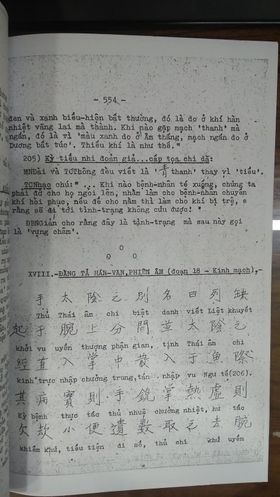 - 554 -
đen và xanh biểu-hiện bất thường, đó là do ở khí hàn
nhiệt vãng lai mà thành. Khi nào gặp mạch 'thanh' mà
ngắn, đó là vì 'màu xanh do ở Âm thắng, mạch ngắn do ở
Dương bất túc'. Thiếu khí là như thế."
205) Kỳ tiểu nhi đoản giả...cấp tọa chi dã:
MNĐài và TCThông đều viết là '青 thanh' thay vì 'tiểu'.
TCNgạc chú:" ... Khi nào bệnh-nhân té xuống, chúng ta
phải đỡ cho họ ngồi lên, nhằm làm cho bệnh-nhân chuyển
khí hồi phục, nếu để cho nằm thì làm cho khí bị trệ, e
rằng sẽ đi tới tình-trạng không cứu được! "
cho rằng đây là tình-trạng mà sau này gọi
là 'vựng châm'.
o
o o
XVIII.- ĐẰNG TẢ HÁN-VĂN, PHIÊN ÂM (đoạn 18 - Kinh mạch).-
手 太 陰 之 別 名 曰 列 缺
Thủ Thái âm chi biệt danh viết Liệt khuyết
起 于 腕 上 分 間 並 太 陰 之
khởi vu uyển thượng phận gian, tịnh Thái âm chi
經 直 入 掌 中 散 入 于 魚 際
kinh trực nhập chưởng trung, tán nhập vu Ngư tế(206).
其 病 實 則 手 銳 掌 熱 虛 則
Kỳ bệnh thực tắc thủ nhuệ chưởng nhiệt, hư tắc
欠 㰦 小 便 遺 數 取 之 去 腕
khiếm khư, tiểu tiện di sổ, thủ chi khứ uyển